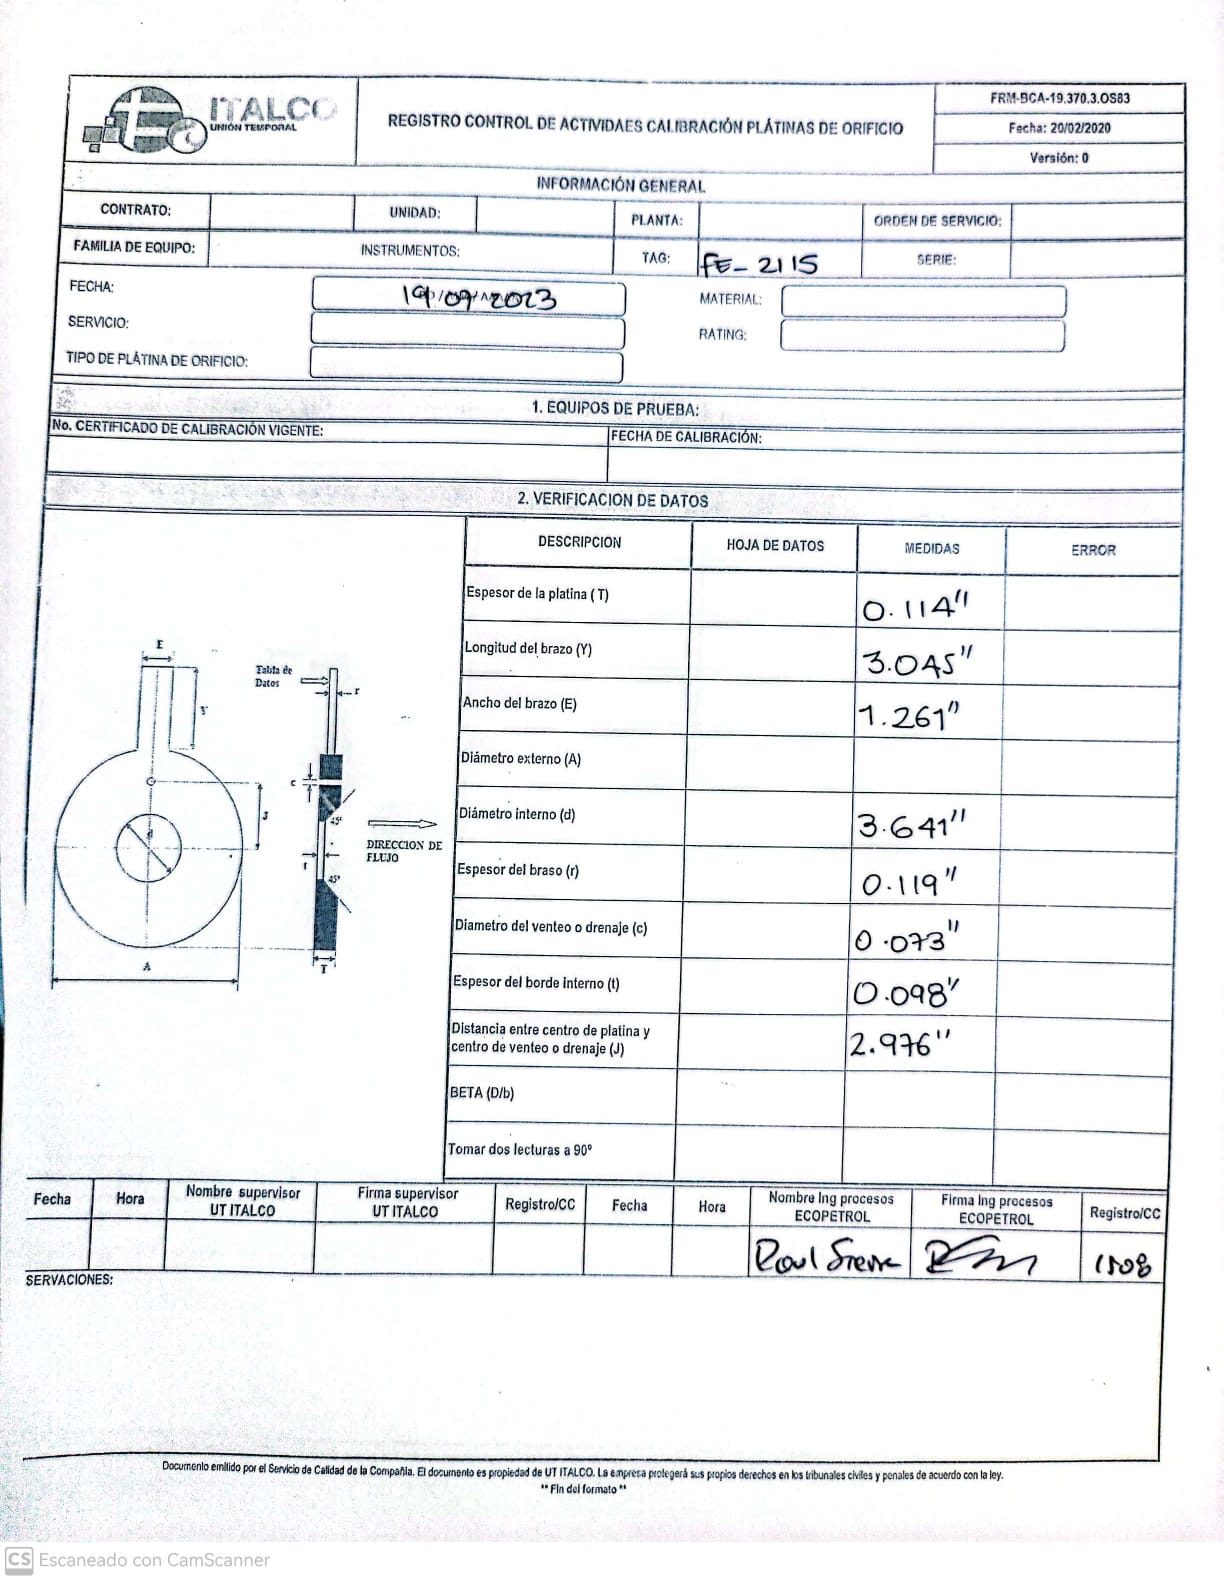 ITALCO
UNIÓN TEMPORAL
REGISTRO CONTROL DE ACTIVIDAES CALIBRACIÓN PLÁTINAS DE ORIFICIO
FRM-BCA-19.370.3.OS83
Fecha: 20/02/2020
Versión: 0
INFORMACIÓN GENERAL
CONTRATO: UNIDAD: PLANTA: ORDEN DE SERVICIO:
FAMILIA DE EQUIPO: INSTRUMENTOS: TAG: FE-2115 SERIE:
FECHA: 19/09/2023 MATERIAL:
SERVICIO: RATING:
TIPO DE PLÁTINA DE ORIFICIO:
1. EQUIPOS DE PRUEBA:
No. CERTIFICADO DE CALIBRACIÓN VIGENTE: FECHA DE CALIBRACIÓN:
2. VERIFICACION DE DATOS
DESCRIPCION HOJA DE DATOS MEDIDAS ERROR
Espesor de la platina ( T) 0.114"
Longitud del brazo (Y) 3.045"
Ancho del brazo (E) 1.261"
Diámetro externo (A)
Diámetro interno (d) 3.641"
Espesor del braso (r) 0.119"
Diametro del venteo o drenaje (c) 0.073"
Espesor del borde interno (t) 0.098"
Distancia entre centro de platina y
centro de venteo o drenaje (J) 2.976"
BETA (D/b)
Tomar dos lecturas a 90º
E
Y
Tabla de
Datos
r
c
J
d
45º
DIRECCION DE
FLUJO
t
45º
A
T
Fecha Hora Nombre supervisor UT ITALCO Firma supervisor UT ITALCO Registro/CC Fecha Hora Nombre Ing procesos ECOPETROL Firma Ing procesos ECOPETROL Registro/CC
Raul Sierra 1508
SERVACIONES:
Documento emitido por el Servicio de Calidad de la Compañía. El documento es propiedad de UT ITALCO. La empresa protegerá sus propios derechos en los tribunales civiles y penales de acuerdo con la ley.
** Fin del formato **
CS Escaneado con CamScanner